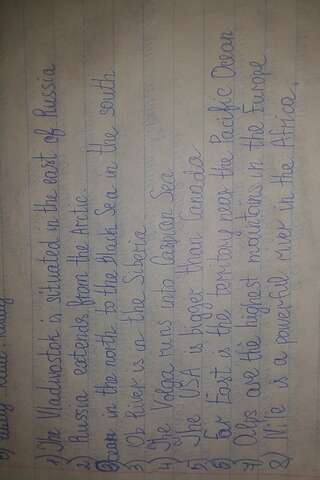 1) The Vladivostok is situated in the east of Russia
2) Russia extends from the Arctic.
in the north to the Black Sea in the south
3) Ob river is in the Siberia
4) The Volga runs into Caspian Sea
5 The USA is bigger than Canada
6 Far East is the territory near the Pacific Ocean
7) Alps are the highest mountains in the Europe
8) Nile is a powerful river in the Africa.